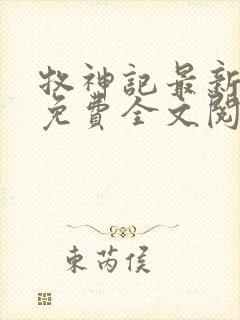 牧神記最新
免費全文閱
東芮侯